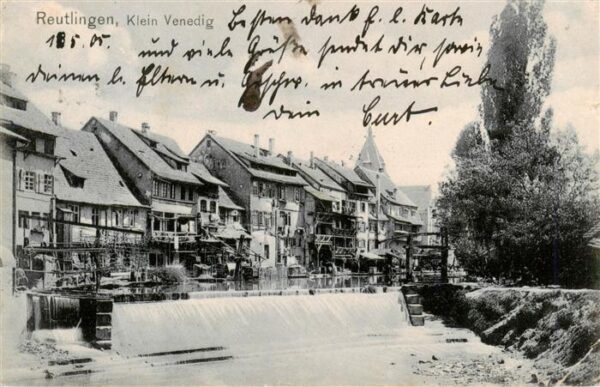 Reutlingen, Klein Venedig
Besten Dank f. l. Karte
18.5.05. und viele Grüße sendet dir, sowie
deinen l. Eltern u. Geschw. in treuer Liebe
Dein Curt.